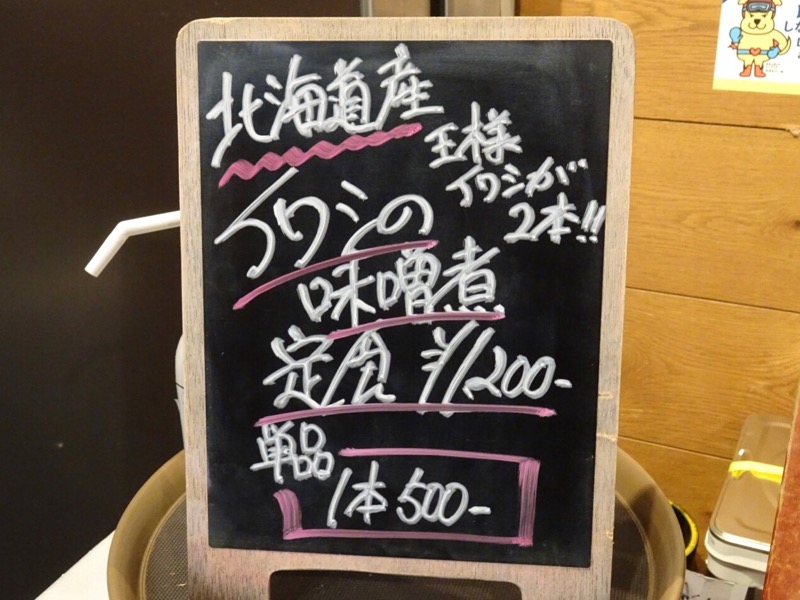 北海道産
王様
イワシが
2本!!
イワシの
味噌煮
定食 ¥1,200-
単品
1本 500-